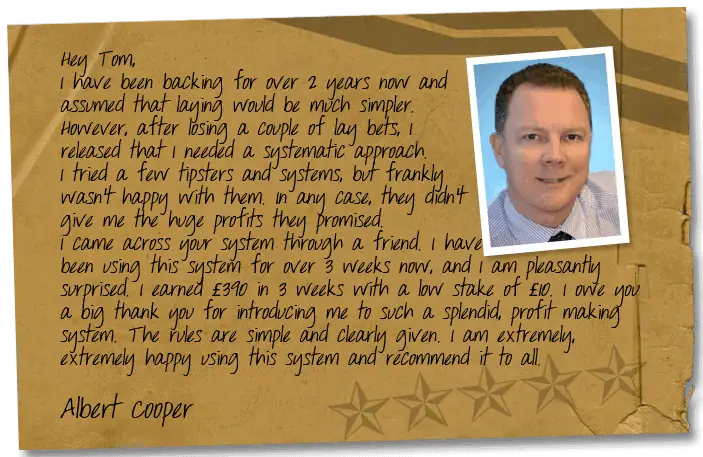 Hey Tom,
I have been backing for over 2 years now and
assumed that laying would be much simpler.
However, after losing a couple of lay bets, I
released that I needed a systematic approach.
I tried a few tipsters and systems, but frankly
wasn't happy with them. In any case, they didn't
give me the huge profits they promised.
I came across your system through a friend. I have
been using this system for over 3 weeks now, and I am pleasantly
surprised. I earned £390 in 3 weeks with a low stake of £10. I owe you
a big thank you for introducing me to such a splendid, profit making
system. The rules are simple and clearly given. I am extremely,
extremely happy using this system and recommend it to all.
Albert Cooper